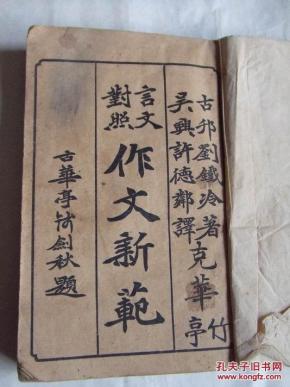 古邗劉鐵冷著
吳興許德鄰譯
克華
竹亭
言文
對照
作文新範
古華亭
劍秋題
孔夫子旧书网